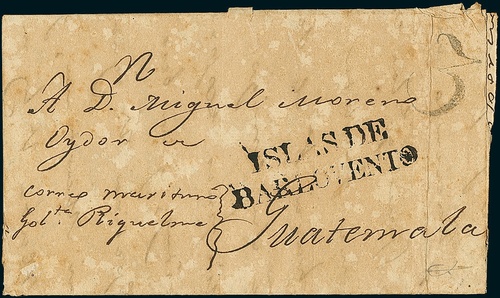 A D. Miguel Moreno
Oydor
ISLAS DE
BARLOVENTO
correo maritimo
Gol.ta Riquelme
Guatemala